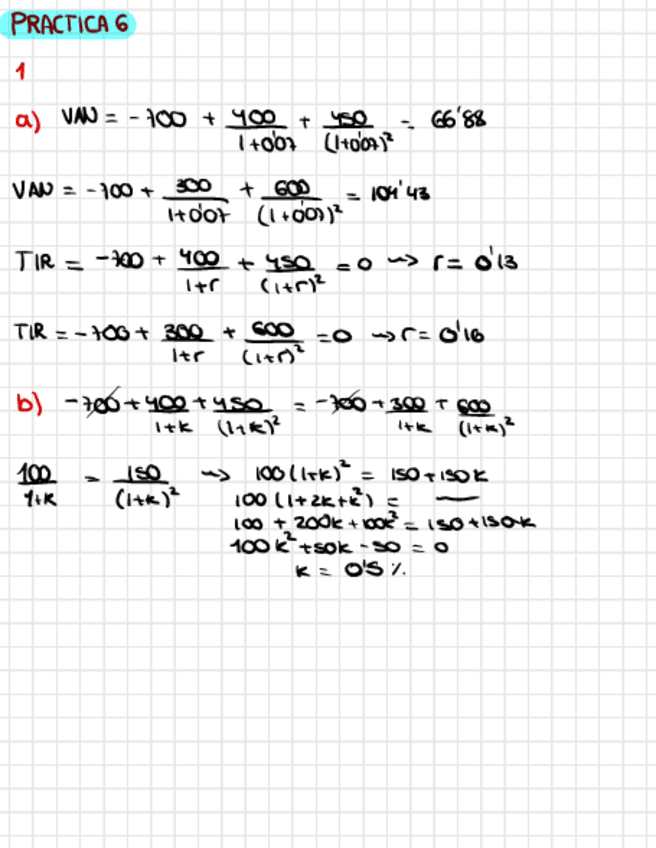 PRACTICA 6
1
a) VAN = -700 + 400/(1+0'07) + 450/(1+0'07)² = 66'88
VAN = -700 + 300/(1+0'07) + 600/(1+0'07)² = 104'43
TIR = -700 + 400/(1+r) + 450/(1+r)² = 0 ⇝ r = 0'13
TIR = -700 + 300/(1+r) + 600/(1+r)² = 0 ⇝ r = 0'16
b) -700 + 400/(1+k) + 450/(1+k)² = -700 + 300/(1+k) + 600/(1+k)²
100/(1+k) = 150/(1+k)² ⇝ 100(1+k)² = 150 + 150k
100(1+2k+k²) = —
100 + 200k + 100k² = 150 + 150k
100k² + 50k - 50 = 0
k = 0'5 %.